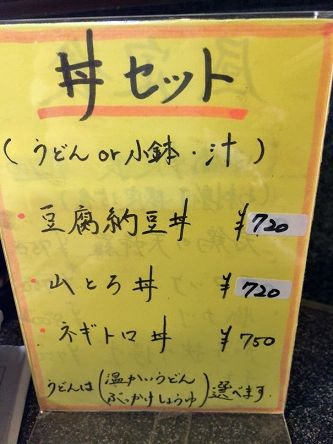 丼セット
(うどんor小鉢・汁)
・豆腐納豆丼 ¥720
・山とろ丼 ¥720
・ネギトロ丼 ¥750
うどんは(温かいうどん
ぶっかけしょうゆ)選べます